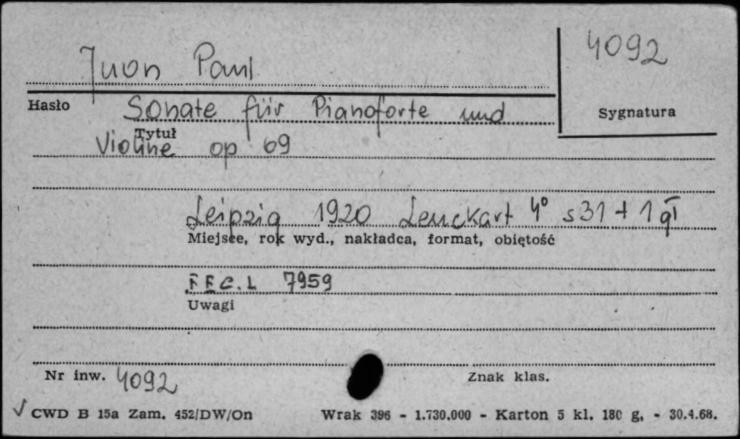 Juon Paul
4092
Hasło
Sonate für Pianoforte und
Sygnatura
Tytuł
Violine op 69
Leipzig 1920 Leuckart 4° s 31 + 1 gł
Miejsce, rok wyd., nakładca, format, obiętość
F E C. L 7959
Uwagi
Nr inw. 4092
Znak klas.
CWD B 15a Zam. 452/DW/On Wrak 396 - 1.730.000 - Karton 5 kl. 180 g. - 30.4.68.